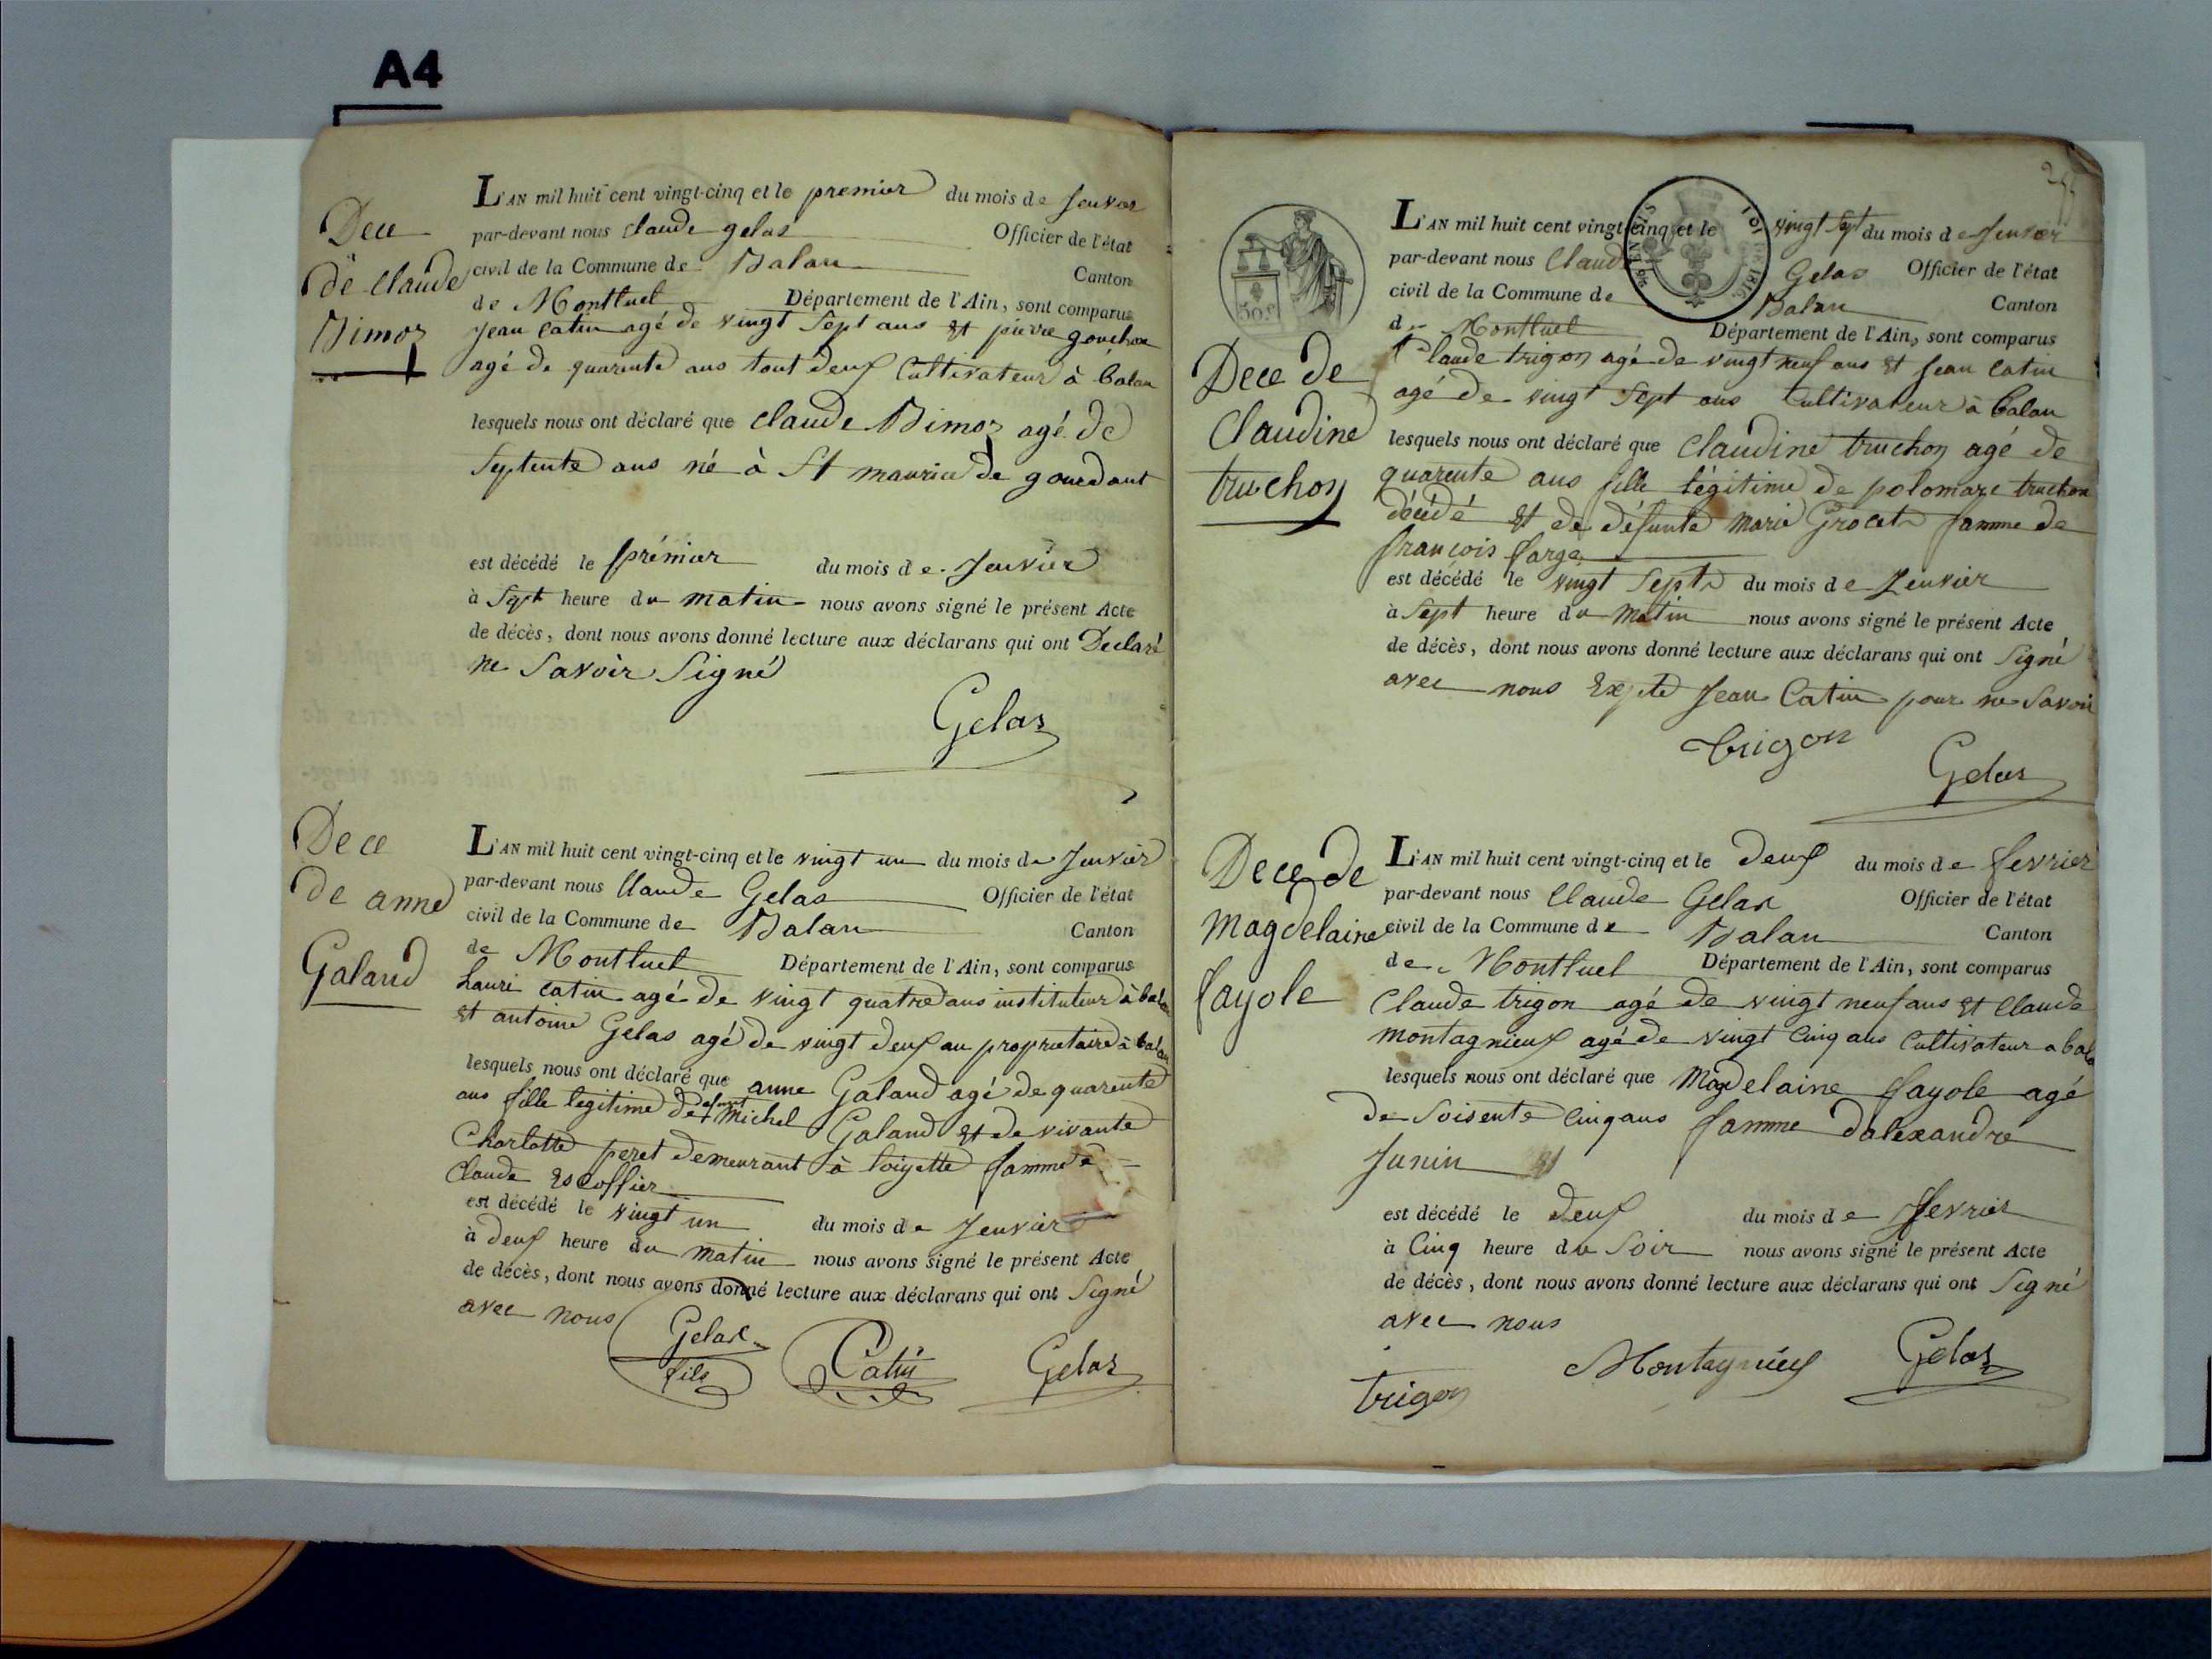 A4
Dece
de Claude
Bimoz
L'AN mil huit cent vingt-cinq et le premier du mois de Jenvier
par-devant nous Claude gelas Officier de l'état
civil de la Commune de Balan Canton
de Montluel Département de l'Ain, sont comparus
Jean Catin agé de vingt Sept ans et pierre gouchon
agé de quarente ans tout deux Cultivateur à balan
lesquels nous ont déclaré que Claude Bimoz agé de
Septente ans né à St maurice de gourdant
est décédé le prémier du mois de Jenvier
à Sept heure du matin nous avons signé le présent Acte
de décès, dont nous avons donné lecture aux déclarans qui ont Declaré
ne Savoir Signé
Gelas
Dece
de anne
Galand
L'AN mil huit cent vingt-cinq et le vingt un du mois de Jenvier
par-devant nous Claude Gelas Officier de l'état
civil de la Commune de Balan Canton
de Montluel Département de l'Ain, sont comparus
hauri Catin agé de vingt quatre ans instituteur à balan
et antoine Gelas agé de vingt deux an proprietaire à balan
lesquels nous ont déclaré que anne Galand agé de quarente
ans fille legitime de defunt Michel Galand et de vivante
Charlotte peret demeurant à loyette famme de
Claude Escoffier
est décédé le vingt un du mois de Jenvier
à deux heure du matin nous avons signé le présent Acte
de décès, dont nous avons donné lecture aux déclarans qui ont Signé
avec nous
Gelas fils Catin Gelas
Dece de
Claudine
truchon
L'AN mil huit cent vingt-cinq et le vingt Sept du mois de Jenvier
par-devant nous Claude Gelas Officier de l'état
civil de la Commune de Balan Canton
de Montluel Département de l'Ain, sont comparus
Claude trigon agé de vingt neuf ans et Jean Catin
agé de vingt Sept ans Cultivateur à balan
lesquels nous ont déclaré que Claudine truchon agé de
quarente ans fille légitime de polomaze truchon
décédé et de défunte Marie Grocet famme de
françois farge
est décédé le vingt Sept du mois de Jenvier
à Sept heure du Matin nous avons signé le présent Acte
de décès, dont nous avons donné lecture aux déclarans qui ont Signé
avec nous Expté Jean Catin pour ne Savoir
trigon Gelas
Dece de
Magdelaine
fayole
L'AN mil huit cent vingt-cinq et le deux du mois de fevrier
par-devant nous Claude Gelas Officier de l'état
civil de la Commune de Balan Canton
de Montluel Département de l'Ain, sont comparus
Claude trigon agé de vingt neuf ans et Claude
montagnieux agé de vingt Cinq ans Cultivateur a bala
lesquels nous ont déclaré que Magdelaine fayole agé
de Soisente Cinq ans famme dalexandre
Junin
est décédé le deux du mois de fevrier
à Cinq heure du Soir nous avons signé le présent Acte
de décès, dont nous avons donné lecture aux déclarans qui ont Signé
avec nous
trigon Montagnieux Gelas